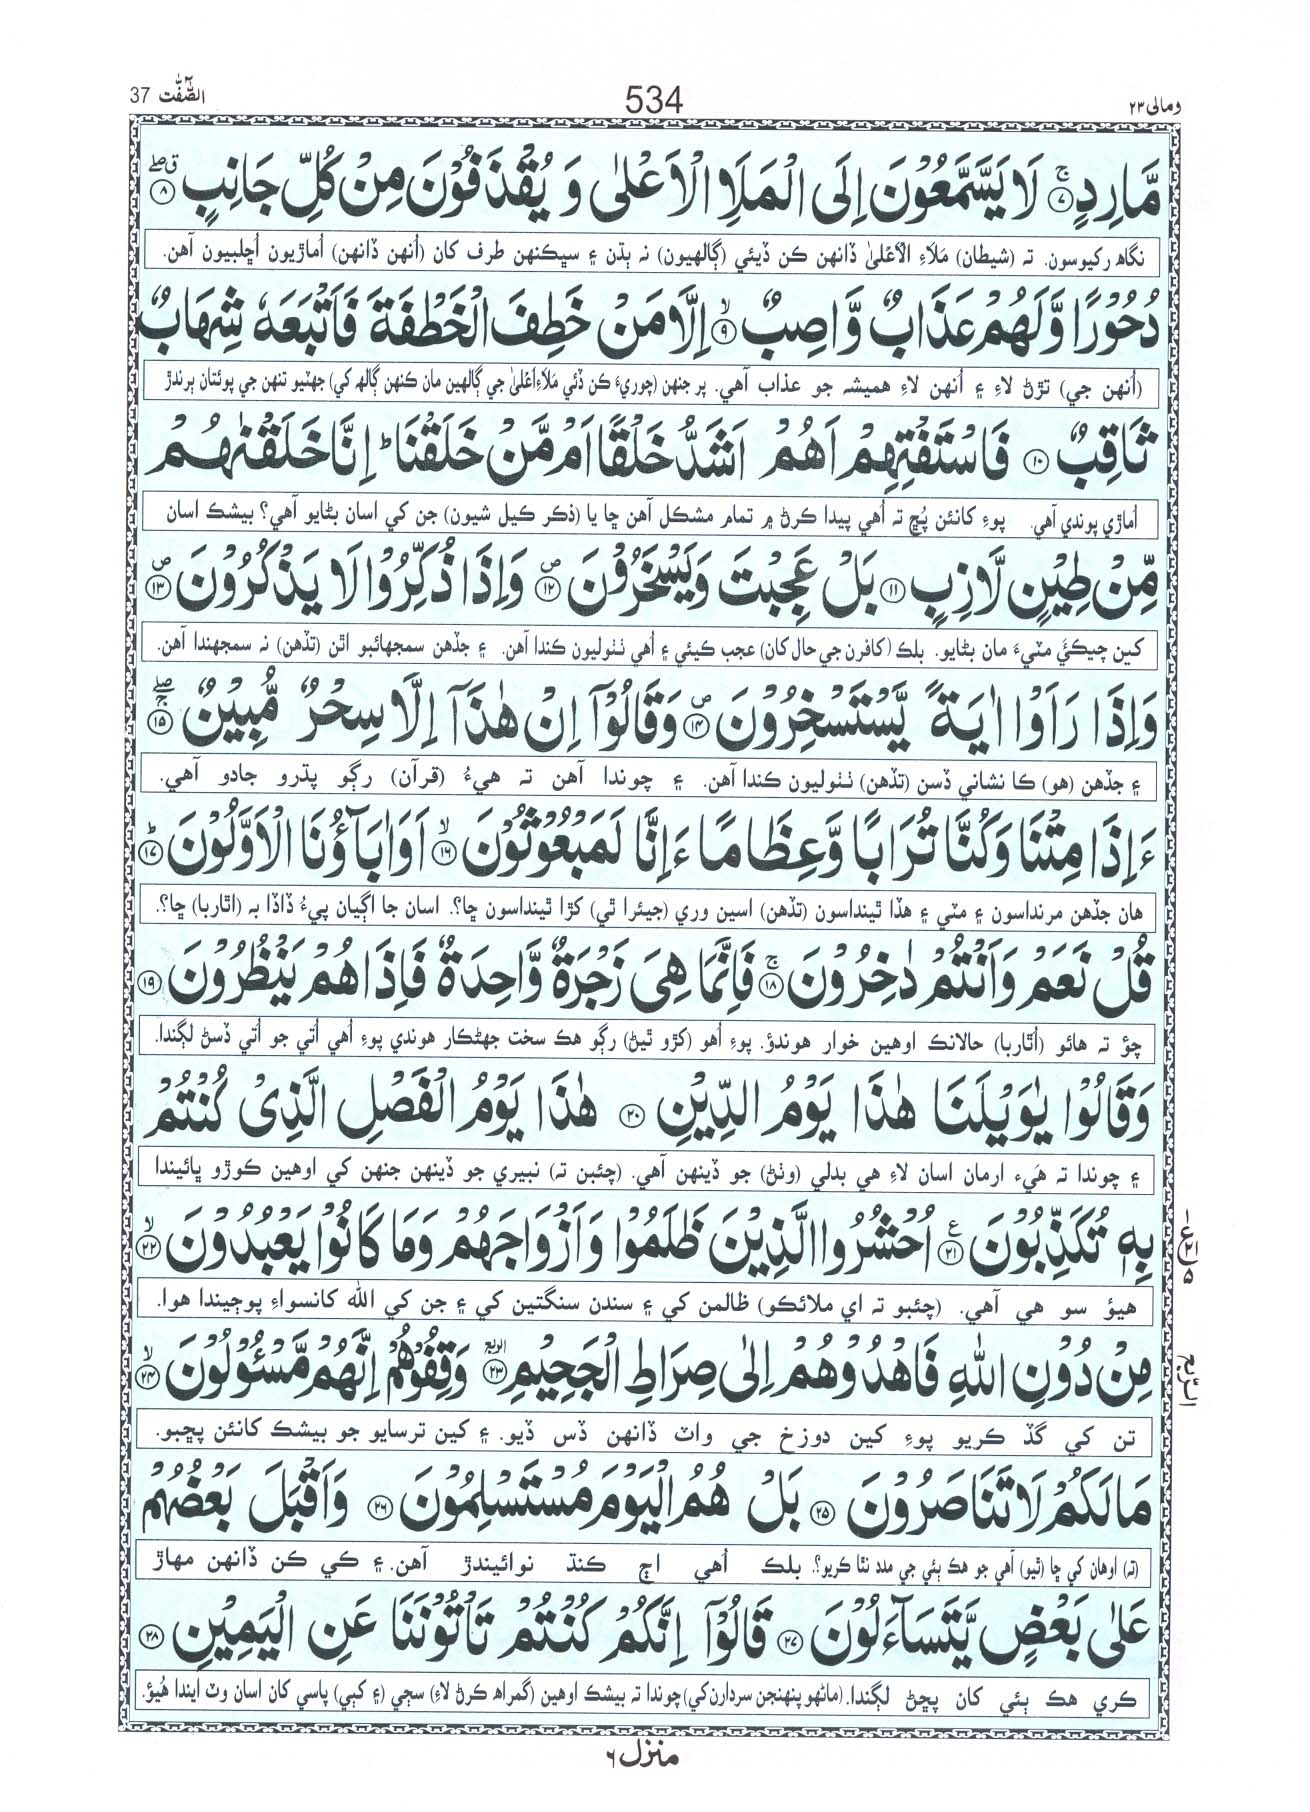 ومالی ۲۳ 534 الصّٰٓفّٰت 37
مَّارِدٍ ۚ﴿۷﴾ لَا يَسَّمَّعُوْنَ اِلَى الْمَلَاِ الْاَعْلٰى وَ يُقْذَفُوْنَ مِنْ كُلِّ جَانِبٍ ۖق ﴿۸﴾
نگاھ رکيوسون. تہ (شيطان) مَلَاءِ الْاَعْلیٰ ڏانھن ڪن ڏيئي (ڳالھيون) نہ ٻڌن ۽ سڀڪنھن طرف کان (اُنھن ڏانھن) اُماڙيون اُڇلبيون آھن.
دُحُوْرًا وَّلَهُمْ عَذَابٌ وَّاصِبٌ ۙ﴿۹﴾ اِلَّا مَنْ خَطِفَ الْخَطْفَةَ فَاَتْبَعَهٗ شِهَابٌ
(اُنھن جي) تڙڻ لاءِ ۽ اُنھن لاءِ ھميشہ جو عذاب آھي. پر جنھن (چوريءَ ڪن ڏئي مَلَاءِ اَعْلیٰ جي ڳالھين مان ڪنھن ڳالھ کي) جھٽيو تنھن جي پوئتان ٻرندڙ
ثَاقِبٌ ﴿۱۰﴾ فَاسْتَفْتِهِمْ اَهُمْ اَشَدُّ خَلْقًا اَمْ مَّنْ خَلَقْنَا ؕ اِنَّا خَلَقْنٰهُمْ
اُماڙي پوندي آھي. پوءِ کانئن پُڇ تہ اُھي پيدا ڪرڻ ۾ تمام مشڪل آھن ڇا يا (ذڪر ڪيل شيون) جن کي اسان بڻايو آھي؟ بيشڪ اسان
مِّنْ طِيْنٍ لَّازِبٍ ﴿۱۱﴾ بَلْ عَجِبْتَ وَيَسْخَرُوْنَ ۪﴿۱۲﴾ وَاِذَا ذُكِّرُوْا لَا يَذْكُرُوْنَ ۪﴿۱۳﴾
کين چيڪيءَ مٽيءَ مان بڻايو. بلڪ (ڪافرن جي حال کان) عجب ڪيئي ۽ اُھي ٺٺوليون ڪندا آھن. ۽ جڏھن سمجھائبو اٿن (تڏھن) نہ سمجھندا آھن.
وَاِذَا رَاَوْا اٰيَةً يَّسْتَسْخِرُوْنَ ۪﴿۱۴﴾ وَقَالُوْۤا اِنْ هٰذَاۤ اِلَّا سِحْرٌ مُّبِيْنٌ ۚۖ﴿۱۵﴾
۽ جڏھن (ھو) ڪا نشاني ڏسن (تڏھن) ٺٺوليون ڪندا آھن. ۽ چوندا آھن تہ ھيءُ (قرآن) رڳو پڌرو جادو آھي.
ءَاِذَا مِتْنَا وَكُنَّا تُرَابًا وَّعِظَامًا ءَاِنَّا لَمَبْعُوْثُوْنَ ۙ﴿۱۶﴾ اَوَاٰبَآؤُنَا الْاَوَّلُوْنَ ؕ﴿۱۷﴾
ھان جڏھن مرنداسون ۽ مٽي ۽ ھڏا ٿينداسون (تڏھن) اسين وري (جيئرا ٿي) کڙا ٿينداسون ڇا؟. اسان جا اڳيان پيءُ ڏاڏا بہ (اٿاربا) ڇا؟.
قُلْ نَعَمْ وَاَنْتُمْ دٰخِرُوْنَ ۚ﴿۱۸﴾ فَاِنَّمَا هِيَ زَجْرَةٌ وَّاحِدَةٌ فَاِذَا هُمْ يَنْظُرُوْنَ ﴿۱۹﴾
چؤ تہ ھائو (اُٿاربا) حالانڪ اوھين خوار ھوندؤ. پوءِ اُھو (کڙو ٿيڻ) رڳو ھڪ سخت جھڻڪار ھوندي پوءِ اُھي اُتي جو اُتي ڏسڻ لڳندا.
وَقَالُوْا يٰوَيْلَنَا هٰذَا يَوْمُ الدِّيْنِ ﴿۲۰﴾ هٰذَا يَوْمُ الْفَصْلِ الَّذِىْ كُنْتُمْ
۽ چوندا تہ ھَيءِ ارمان اسان لاءِ ھي بدلي (وٺڻ) جو ڏينھن آھي. (چئبن تہ) نبيري جو ڏينھن جنھن کي اوھين ڪوڙو ڀائيندا
بِهٖ تُكَذِّبُوْنَ ﴿۲۱﴾ ع اُحْشُرُوا الَّذِيْنَ ظَلَمُوْا وَاَزْوَاجَهُمْ وَمَا كَانُوْا يَعْبُدُوْنَ ۙ﴿۲۲﴾
ھيؤ سو ھي آھي. (چئبو تہ اي ملائڪو) ظالمن کي ۽ سندن سنگتين کي ۽ جن کي الله کانسواءِ پوڄيندا ھوا.
مِنْ دُوْنِ اللّٰهِ فَاهْدُوْهُمْ اِلٰى صِرَاطِ الْجَحِيْمِ ﴿۲۳﴾ الربع وَقِفُوْهُمْ اِنَّهُمْ مَّسْـُٔوْلُوْنَ ۙ﴿۲۴﴾
تن کي گڏ ڪريو پوءِ کين دوزخ جي واٽ ڏانھن ڏس ڏيو. ۽ کين ترسايو جو بيشڪ کانئن پڇبو.
مَا لَكُمْ لَا تَنَاصَرُوْنَ ﴿۲۵﴾ بَلْ هُمُ الْيَوْمَ مُسْتَسْلِمُوْنَ ﴿۲۶﴾ وَاَقْبَلَ بَعْضُهُمْ
(تہ) اوھان کي ڇا (ٿيو) آھي جو ھڪ ٻئي جي مدد نٿا ڪريو؟. بلڪ اُھي اڄ ڪنڌ نوائيندڙ آھن. ۽ ڪي ڪن ڏانھن مھاڙ
عَلٰى بَعْضٍ يَّتَسَآءَلُوْنَ ﴿۲۷﴾ قَالُوْۤا اِنَّكُمْ كُنْتُمْ تَاْتُوْنَنَا عَنِ الْيَمِيْنِ ﴿۲۸﴾
ڪري ھڪ ٻئي کان پڇڻ لڳندا. (ماڻھو پنھنجن سردارن کي) چوندا تہ بيشڪ اوھين (گمراھ ڪرڻ لاءِ) سڄي (۽ کٻي) پاسي کان اسان وٽ ايندا ھُيؤ.
الرّبع
منزل ۶